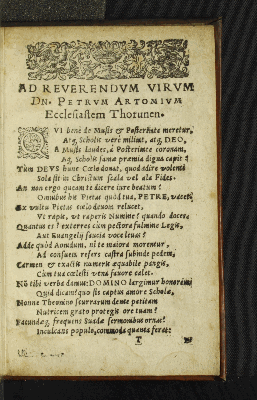 AD REVERENDVM VIRVM
DN. PETRVM ARTOMIVM
Ecclesiastem Thorunen.
QVI benè de Musis & Posteritate meretur,
Atq́, Scholis verè militat, atq́, DEO,
A Musis laudes, à Posteritate coronam,
Aq́, Scholis famæ præmia digna capit:
Tùm DEVS hunc Cœlo donat, quod adire volenti
Sola sit in Christum scala vel ala Fides.
An non ergo queam te dicere iure beatum?
Omnibus hic Pietas quòd tua, PETRE, vacet?
Ex vultu Pietas cœlo devota relucet,
Vt rapis, vt raperis Numine! quando doces,
Quantus es! exterres cùm pectora fulmine Legis,
Aut Euangelij saucia voce levas!
Adde quòd Aonidum, ni te maiora morentur,
Ad consueta refers castra subinde pedem,
Carmen & exactis numeris æquabile pangis,
Cùm tua cœlesti vena favore calet.
Nõ tibi verba damus: DOMINO largimur honorem,
Quid dicam? quo sis captus amore Scholæ,
Nonne Theonino scurrarum dente petitam
Nutricem grato protegis ore tuam?
Facundæq́, frequens Suadæ sermonibus ornas?
Inculcans populo, commoda quanta ferat:
T